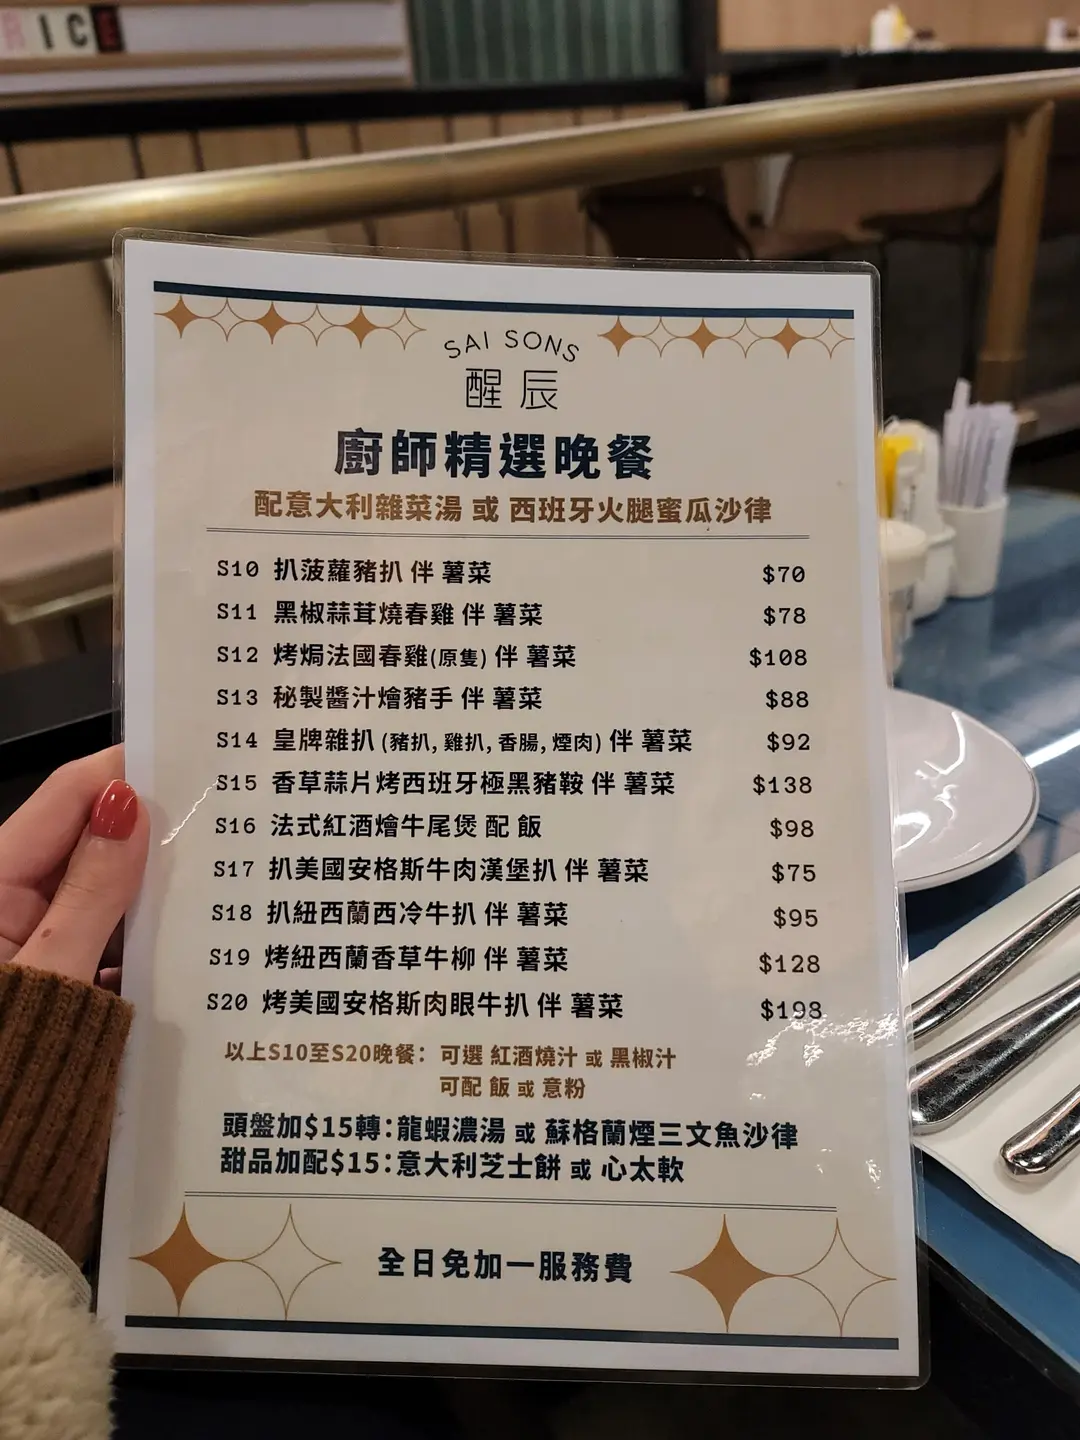 RICE
SAI SONS
醒辰
廚師精選晚餐
配意大利雜菜湯 或 西班牙火腿蜜瓜沙律
S10 扒菠蘿豬扒 伴 薯菜 $70
S11 黑椒蒜茸燒春雞 伴 薯菜 $78
S12 烤焗法國春雞(原隻) 伴 薯菜 $108
S13 秘製醬汁燴豬手 伴 薯菜 $88
S14 皇牌雜扒 (豬扒, 雞扒, 香腸, 煙肉) 伴 薯菜 $92
S15 香草蒜片烤西班牙極黑豬鞍 伴 薯菜 $138
S16 法式紅酒燴牛尾煲 配 飯 $98
S17 扒美國安格斯牛肉漢堡扒 伴 薯菜 $75
S18 扒紐西蘭西冷牛扒 伴 薯菜 $95
S19 烤紐西蘭香草牛柳 伴 薯菜 $128
S20 烤美國安格斯肉眼牛扒 伴 薯菜 $198
以上S10至S20晚餐：可選 紅酒燒汁 或 黑椒汁
可配 飯 或 意粉
頭盤加$15轉：龍蝦濃湯 或 蘇格蘭煙三文魚沙律
甜品加配$15：意大利芝士餅 或 心太軟
全日免加一服務費